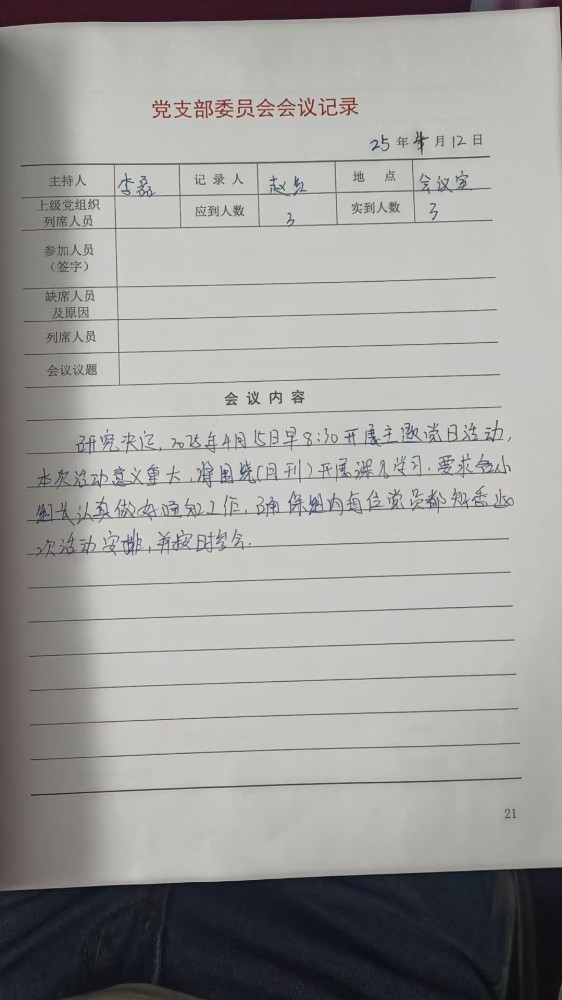 党支部委员会会议记录
25 年 4 月 12 日
主持人 李磊 记录人 赵 地点 会议室
上级党组织列席人员 应到人数 3 实到人数 3
参加人员（签字）
缺席人员及原因
列席人员
会议议题
会议内容
研究决定，2025年4月15日早8:30开展主题党日活动，
本次活动意义重大，将围绕(月刊)开展深入学习，要求各小
组长认真做好通知工作，确保组内每位党员都知悉此
次活动安排，并按时参会．
21